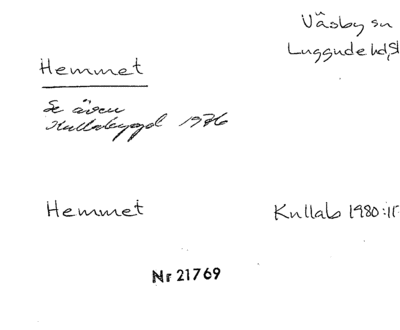 Väsby sn
Luggude hd, Sk
Hemmet
Se även
Kullabygd 1976
Hemmet
Kullab 1980:11
Nr 21769